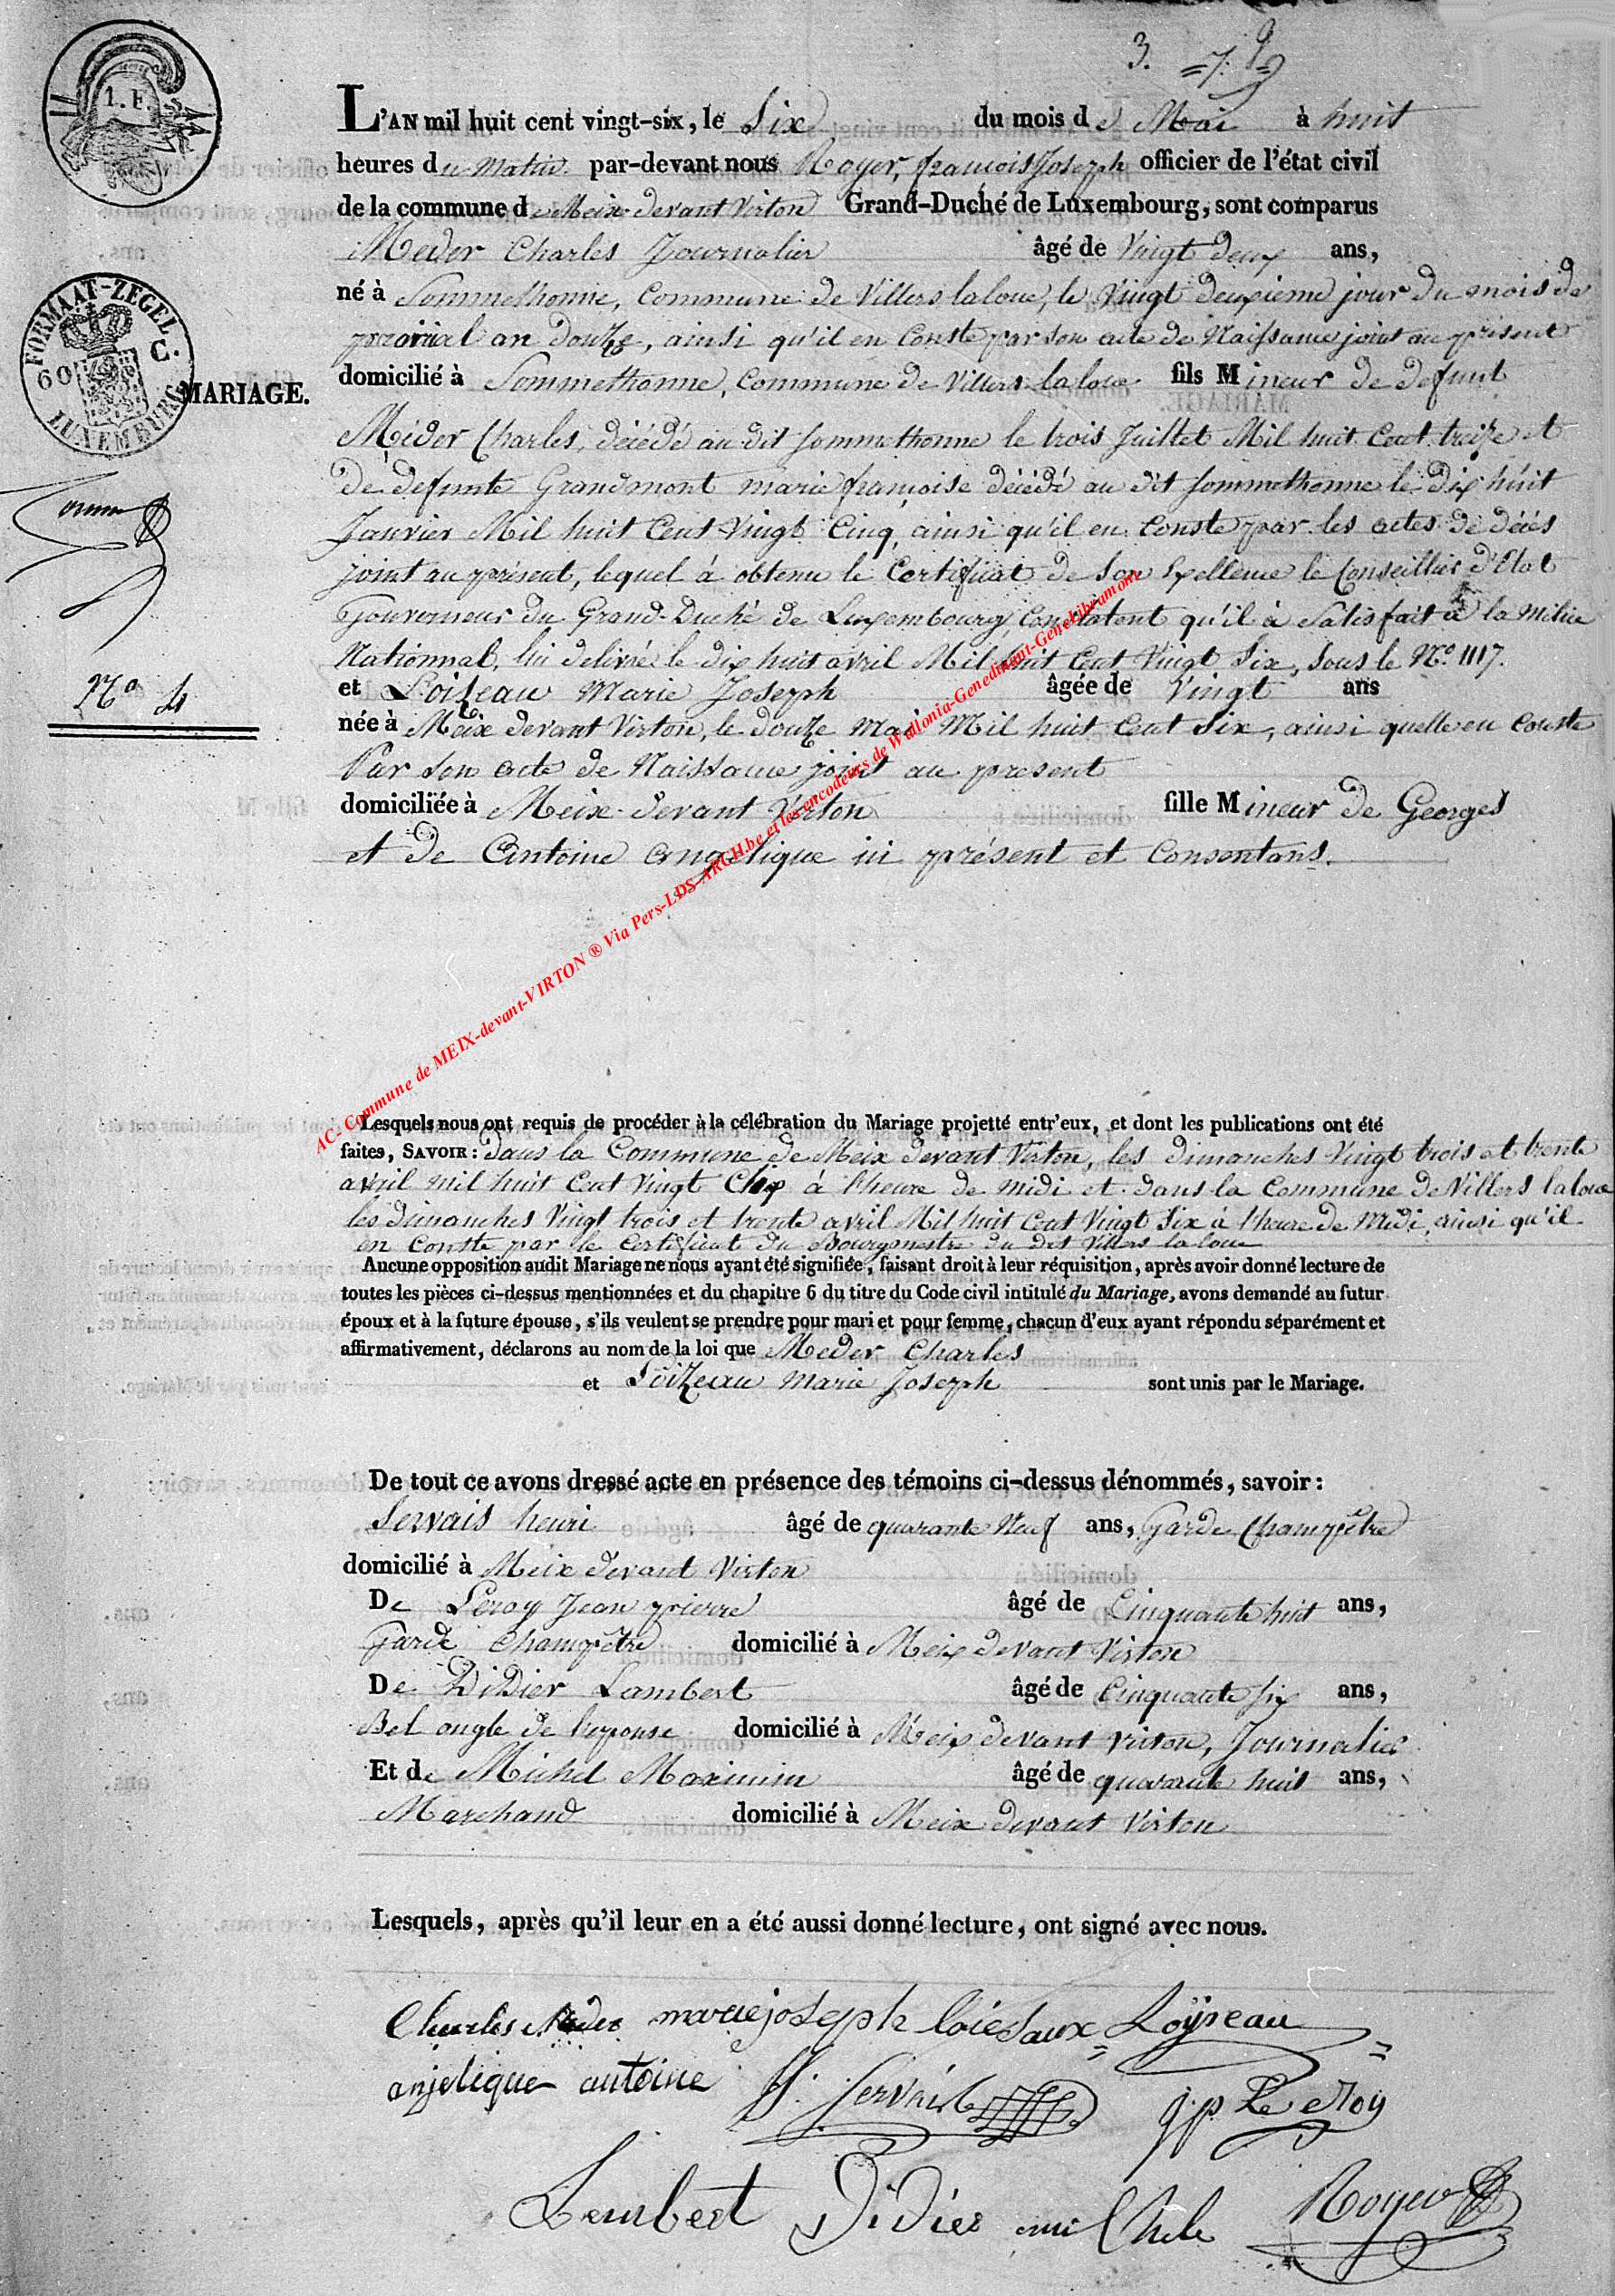 3. =7. 9=
1. F.
L'AN mil huit cent vingt-six, le Six du mois de Mai à huit
heures du Matin par-devant nous Royer, françois Joseph officier de l'état civil
de la commune de Meix devant Virton Grand-Duché de Luxembourg, sont comparus
Meder Charles Journalier âgé de Vingt deux ans,
né à Sommethonne, Commune de Villers laloue, le Vingt deuxieme jour du mois de
prairial an douze, ainsi qu'il en Conste par son acte de Naissance joint au present
FORMAAT-ZEGEL
60 C.
LUXEMBURG
MARIAGE.
domicilié à Sommethonne, Commune de Villers laloue fils Mineur de defunt
Meder Charles, décédé au dit Sommethonne le trois Juillet Mil huit Cent treize et
de defunte Grandmont marie françoise décédé au dit Sommethonne le dix huit
Janvier Mil huit Cent Vingt Cinq, ainsi qu'il en Conste par les actes de décés
joint au présent, lequel à obtenu le Certificat de Son Exellence le Conseillier d'Etat
Gouverneur du Grand-Duché de Luxembourg, Constatent qu'il à Satisfait à la Milice
Nationnal, lui delivré le dix huit avril Mil huit Cent Vingt Six, Sous le No. 1117.
No 4
et Loizeau Marie Joseph âgée de Vingt ans
née à Meix devant Virton, le douze Mai Mil huit Cent Six, ainsi quelle en Conste
Par Son acte de Naissance joint au present
domiciliée à Meix devant Virton fille Mineur de Georges
et de Antoine angelique ici présent et Consentans.
AC- Commune de MEIX-devant-VIRTON ® Via Pers-LDS-ARCH.be et les encodeurs de Wallonia-Genedinant-GeneLibramont
Lesquels nous ont requis de procéder à la célébration du Mariage projetté entr'eux, et dont les publications ont été
faites, SAVOIR: Dans la Commune de Meix devant Virton, les dimanches Vingt trois et trente
avril mil huit Cent Vingt Six à l'heure de midi et dans la Commune de Villers laloue
les dimanches Vingt trois et trente avril Mil huit Cent Vingt Six à l'heure de Midi, ainsi qu'il
en Conste par le Certificat du Bourgmestre du dit Villers laloue
Aucune opposition audit Mariage ne nous ayant été signifiée, faisant droit à leur réquisition, après avoir donné lecture de
toutes les pièces ci-dessus mentionnées et du chapitre 6 du titre du Code civil intitulé du Mariage, avons demandé au futur
époux et à la future épouse, s'ils veulent se prendre pour mari et pour femme, chacun d'eux ayant répondu séparément et
affirmativement, déclarons au nom de la loi que Meder Charles
et Loizeau Marie Joseph sont unis par le Mariage.
De tout ce avons dressé acte en présence des témoins ci-dessus dénommés, savoir:
Servais henri âgé de quarante Neuf ans, Garde Champêtre
domicilié à Meix devant Virton
De Leroy Jean pierre âgé de Cinquante huit ans,
Garde Champêtre domicilié à Meix devant Virton
De Didier Lambert âgé de Cinquante six ans,
Bel ongle de l'epouse domicilié à Meix devant Virton, Journalier
Et de Michel Maximin âgé de quarante huit ans,
Marchand domicilié à Meix devant Virton
Lesquels, après qu'il leur en a été aussi donné lecture, ont signé avec nous.
Charles Meder marie joseph loiesaux Loyseau
anjelique antoine H. Servais j.p. Le Roy
Lambert Didier mi Chele Royer